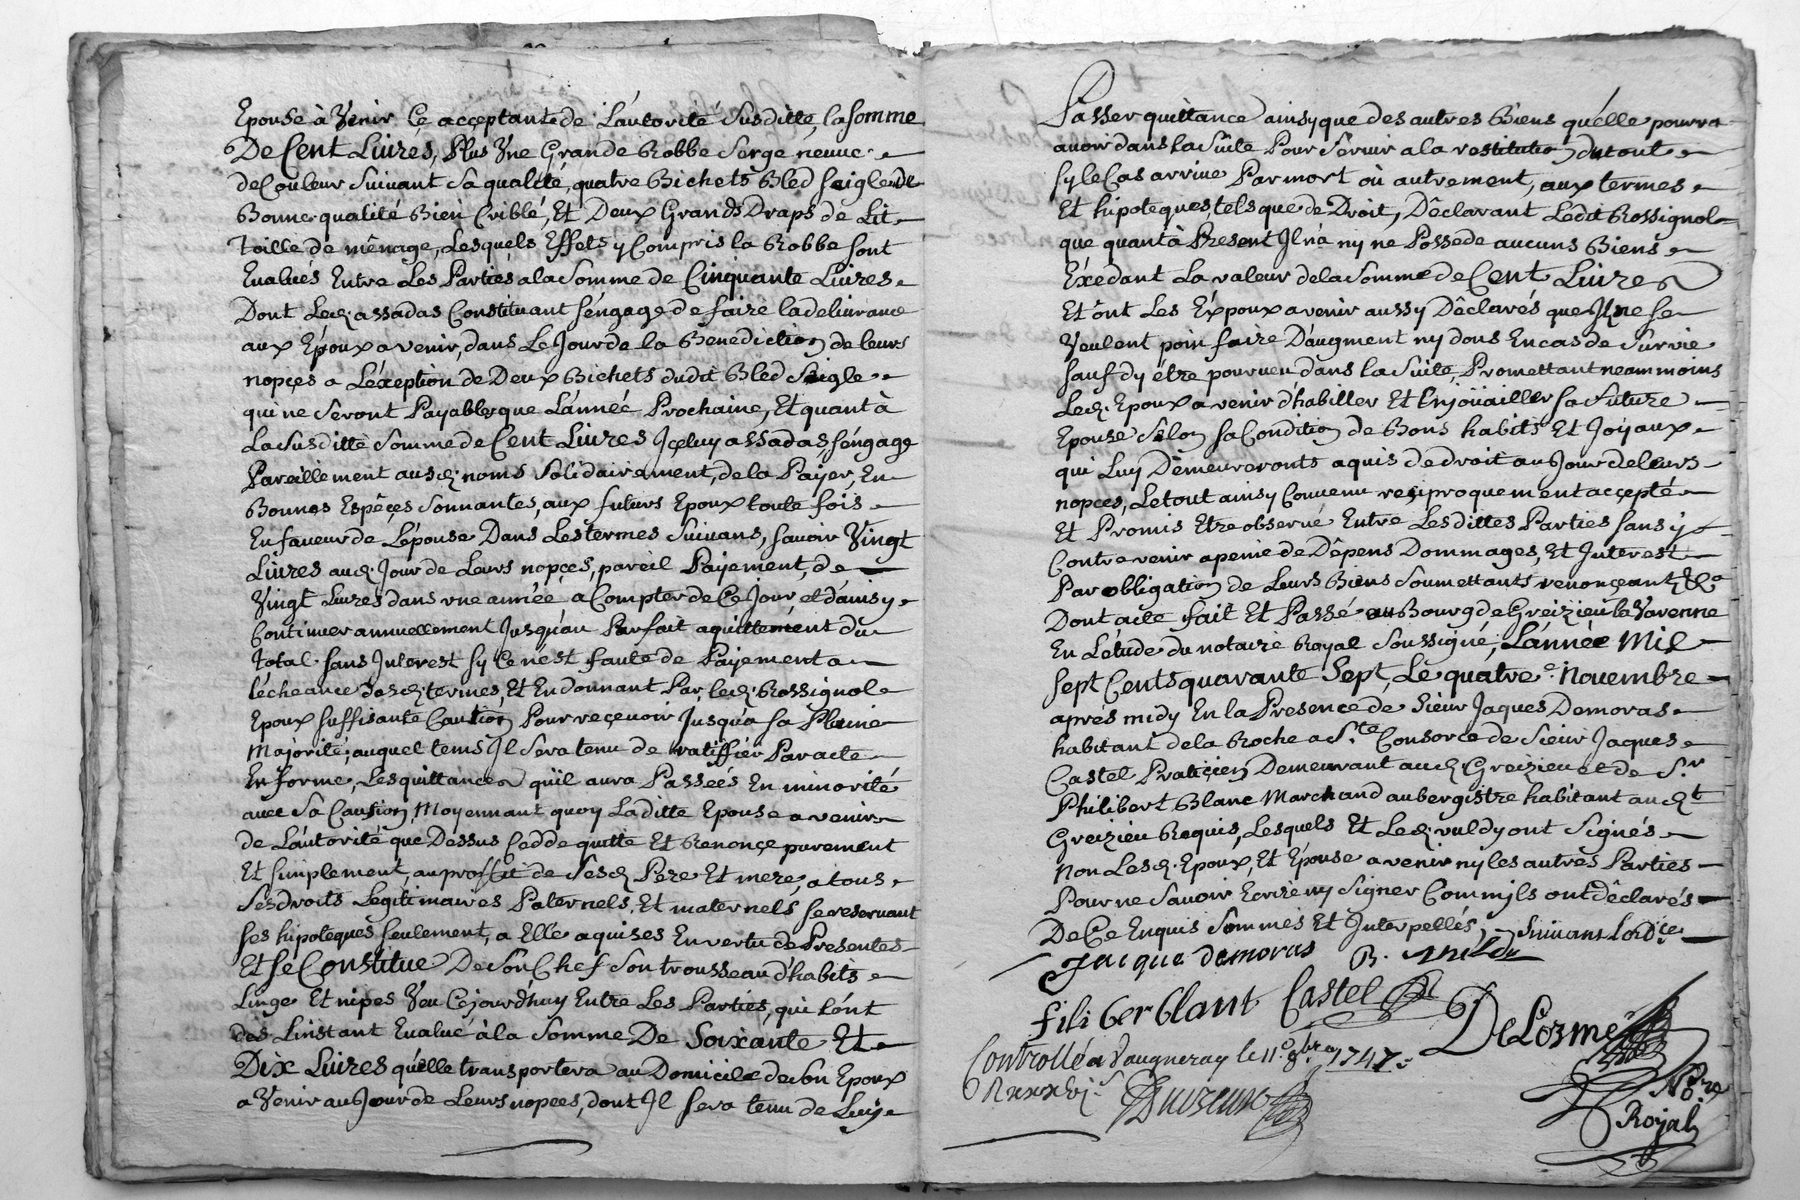 Epouse à Venir Ce acceptante de L'autorité Susditte, la somme
De Cent Livres, Plus Vne Grande Robbe Serge neuve
de Couleur Suivant Sa qualité, quatre Bichets Bled Seigle de
Bonne qualité Bien Criblé, Et Deux Grands Draps de Lit
Toille de mênage, Lesquels Effets y Compris la Robbe sont
Evalués Entre Les Parties a la Somme de Cinquante Livres
Dont Led. assadas Constituant s'engage de faire la delivrance
aux Epoux a venir, dans Le Jour de la Benediction de leurs
nopçes a L'éxception de Deux Bichets dudit Bled Seigle
qui ne Seront Payables que L'année Prochaine, Et quant à
La Susditte Somme de Cent Livres Içeluy assadas, s'engage
Pareillement ausd. noms Solidairement, de la Païer, En
Bonnes Espêçes Sonnantes, aux futurs Epoux toute fois
En faveur de L'épouse Dans Les termes Suivans, Savoir Vingt
Livres aud. Jour de Leurs nopçes, pareil Païement, de
Vingt Livres dans vne année a Compter de Ce Jour, et d'ainsy
Continuer annuellement Jusqu'au Parfait aquittement du
Total sans Interest sy Ce n'est faute de Païement a
l'écheance desd. termes, Et En donnant Par led. Rossignol
Epoux suffisante Caution Pour reçevoir Jusqu'a sa Pleine
Majorité, auquel tems Il Sera tenu de ratiffiér Par acte
En forme, Les quittances qu'il aura Passées En minorité
avec Sa Caution Moyennant quoy Laditte Epouse a venir
de L'autorité que Dessus Cedde quitte Et Renonçe purement
Et simplement, au proffit de Sesd. Pere Et mere, a tous
Ses droits Legitimaires Paternels, Et maternels se reservant
ses hipoteques seulement, a Elle aquises En vertu de Presentes
Et se Constitue De Son Chef Son trousseau d'habits
Linge Et nipes Veu Cejourd'huy Entre Les Parties, qui l'ont
des L'instant Evalué à la Somme De Soixante Et
Dix Livres qu'elle transportera au Domicile de Son Epoux
a Venir au Jour de Leurs nopces, dont Il sera tenu de Luy
Passer quittance ainsy que des autres Biens qu'elle pourra
avoir dans la Suite Pour Servir a la restitution du tout
sy le Cas arrive Par mort où autrement, aux termes
Et hipoteques, tels que de Droit, Dêclarant Ledit Rossignol
que quant à Present Il n'a ny ne Possede aucuns Biens
Exedant La valeur de la Somme de Cent Livres
Et ont Les Expoux a venir aussy Dêclarés que Ils ne se
Veulent poin faire D'augment ny dons En cas de Survie
sauf d'y étre pourveu dans la Suite, Promettant neammoins
Led. Epoux a venir d'habiller Et Enjoüailler sa Future
Epouse Selon sa Condition de Bons habits Et Joyaux
qui Luy Dêmeureronts aquis de droit au Jour de leurs
nopces, Le tout ainsy Convenu reçiproquement accepté
Et Promis Etre observé Entre Lesdittes Parties sans y
Contrevenir a peine de Dêpens Dommages, Et Interest
Par obligation de Leurs Biens Soumettants renonçeant &a
Dont acte fait Et Passé au Bourg de Greizieu la Varenne
En L'étude du notaire Royal Soussigné, L'année Mil
Sept Cents quarante Sept, Le quatre Novembre
aprés midy En la Presence de Sieur Jaques Demoras
habitant de la Roche a Ste Consorce de Sieur Jacques
Castel Pratiçien Demeurant aud. Greizieu et de Sr
Philibert Blanc Marchand aubergistre habitant audt
Greizieu Requis, Lesquels Et Led. vuldy ont Signés
Non Lesd. Epoux, Et Epouse a venir ny les autres Parties
Pour ne Savoir Ecrire ny Signer Comm'ils ont dêclarés
De Ce Enquis Sommés Et Interpellés, Suivant Lordce
Jacque demoras
filiber blant Castel DeLorme
Controllé a Vaugneray le 11e 9bre 1747
Nre
Royal